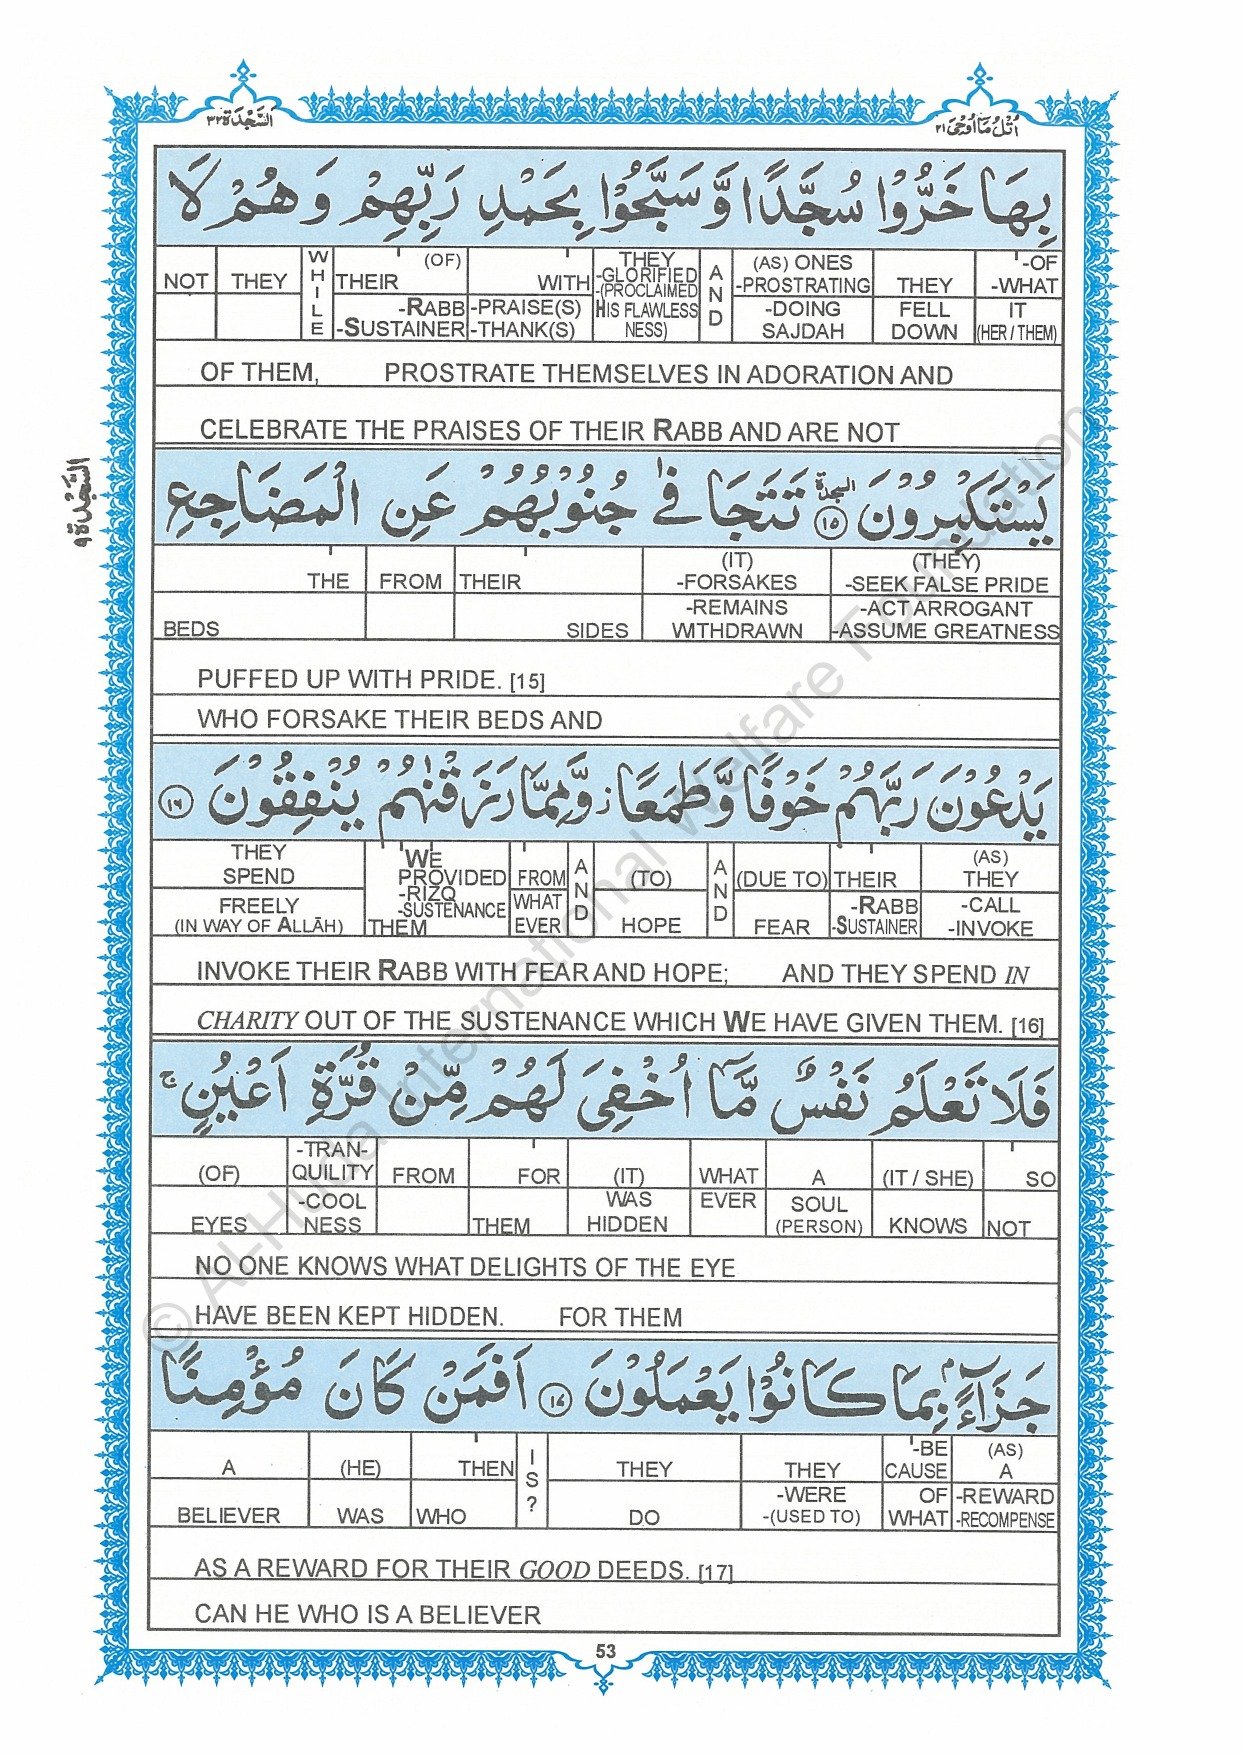 اَلسَّجْدَة ٣٢
اُتْلُ مَا اُوْحِيَ ٢١
بِهَا خَرُّوْا سُجَّدًا وَّ سَبَّحُوْا بِحَمْدِ رَبِّهِمْ وَ هُمْ لَا
NOT THEY WHILE THEIR (OF) -RABB -SUSTAINER WITH -PRAISE(S) -THANK(S) THEY -GLORIFIED -(PROCLAIMED HIS FLAWLESS NESS) AND (AS) ONES -PROSTRATING -DOING SAJDAH THEY FELL DOWN -OF -WHAT IT (HER / THEM)
OF THEM, PROSTRATE THEMSELVES IN ADORATION AND
CELEBRATE THE PRAISES OF THEIR RABB AND ARE NOT
السَّجْدَة ٩
يَسْتَكْبِرُوْنَ السجدة ١٥ تَتَجَافٰى جُنُوْبُهُمْ عَنِ الْمَضَاجِعِ
THE BEDS FROM THEIR SIDES (IT) -FORSAKES -REMAINS WITHDRAWN (THEY) -SEEK FALSE PRIDE -ACT ARROGANT -ASSUME GREATNESS
PUFFED UP WITH PRIDE. [15]
WHO FORSAKE THEIR BEDS AND
يَدْعُوْنَ رَبَّهُمْ خَوْفًا وَّ طَمَعًا ز وَّ مِمَّا رَزَقْنٰهُمْ يُنْفِقُوْنَ ١٦
THEY SPEND FREELY (IN WAY OF ALLĀH) WE PROVIDED -RIZQ -SUSTENANCE THEM FROM WHAT EVER AND (TO) HOPE AND (DUE TO) FEAR THEIR -RABB -SUSTAINER (AS) THEY -CALL -INVOKE
INVOKE THEIR RABB WITH FEAR AND HOPE; AND THEY SPEND IN
CHARITY OUT OF THE SUSTENANCE WHICH WE HAVE GIVEN THEM. [16]
فَلَا تَعْلَمُ نَفْسٌ مَّا اُخْفِىَ لَهُمْ مِّنْ قُرَّةِ اَعْيُنٍ ج
(OF) EYES -TRAN- QUILITY -COOL NESS FROM FOR THEM (IT) WAS HIDDEN WHAT EVER A SOUL (PERSON) (IT / SHE) KNOWS SO NOT
NO ONE KNOWS WHAT DELIGHTS OF THE EYE
HAVE BEEN KEPT HIDDEN. FOR THEM
جَزَآءًۢ بِمَا كَانُوْا يَعْمَلُوْنَ ١٧ اَفَمَنْ كَانَ مُؤْمِنًا
A BELIEVER (HE) WAS THEN WHO IS? THEY DO THEY -WERE -(USED TO) -BE CAUSE OF WHAT (AS) A -REWARD -RECOMPENSE
AS A REWARD FOR THEIR GOOD DEEDS. [17]
CAN HE WHO IS A BELIEVER
53
© Al-Huda International Welfare Foundation